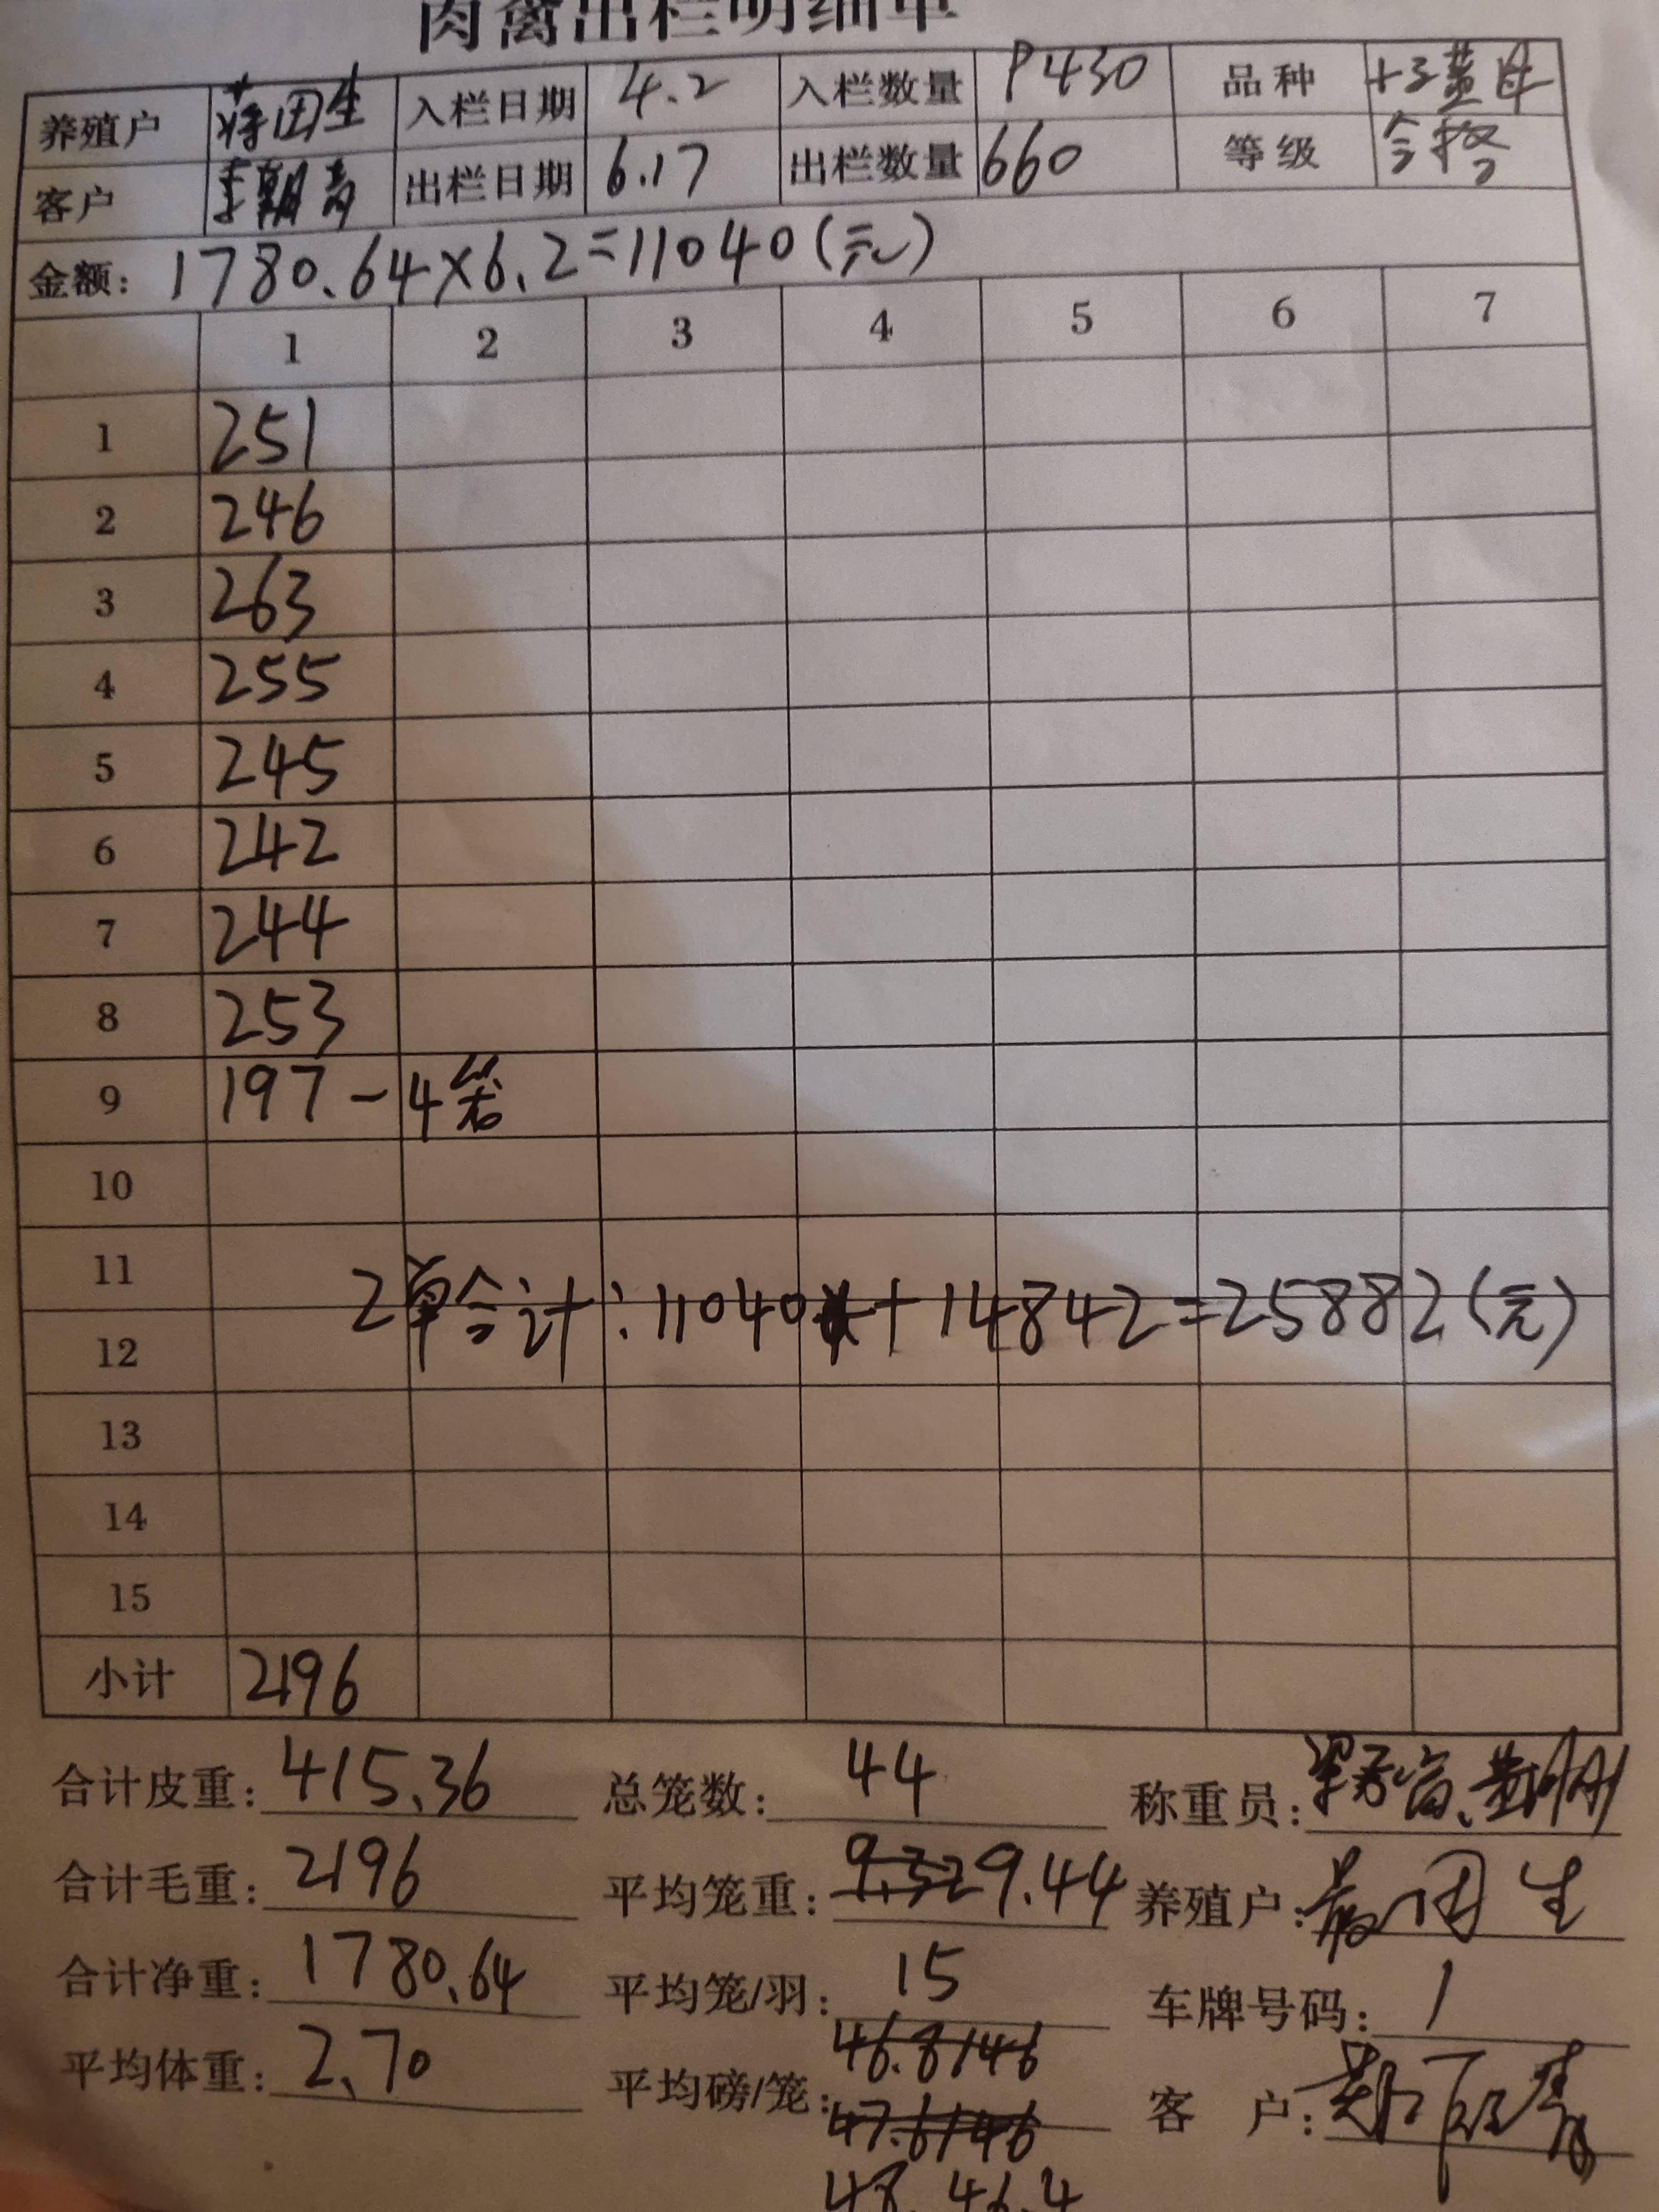 肉禽出栏明细单
养殖户 蒋团生 入栏日期 4.2 入栏数量 P430 品种 土3黄母
客户 出栏日期 6.17 出栏数量 660 等级 合格
金额: 1780.64×6.2=11040(元)
1 2 3 4 5 6 7
1 251
2 246
3 263
4 255
5 245
6 242
7 244
8 253
9 197-4笼
10
11
2单合计:11040+14842=25882(元)
12
13
14
15
小计 2196
合计皮重: 415.36 总笼数: 44 称重员:
合计毛重: 2196 平均笼重: 9.32 9.44 养殖户: 蒋团生
合计净重: 1780.64 平均笼/羽: 15 车牌号码: 1
46.8146
平均体重: 2.70 平均磅/笼: 客 户:
47.6146
48. 46.4